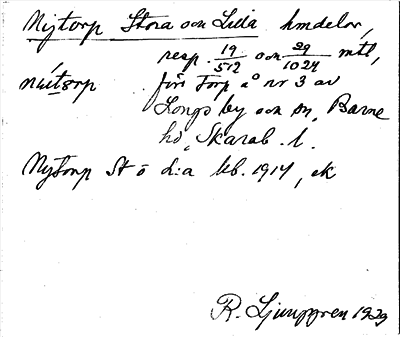 Nytorp Stora och Lilla hmdelar,
resp. 19/512 och 29/1024 mtl,
nýtorp förr Torp å nr 3 av
Longs by och sn, Barne
hd, Skarab. l.
Nytorp St o L:a kb. 1914, ek
R. Ljunggren 1929